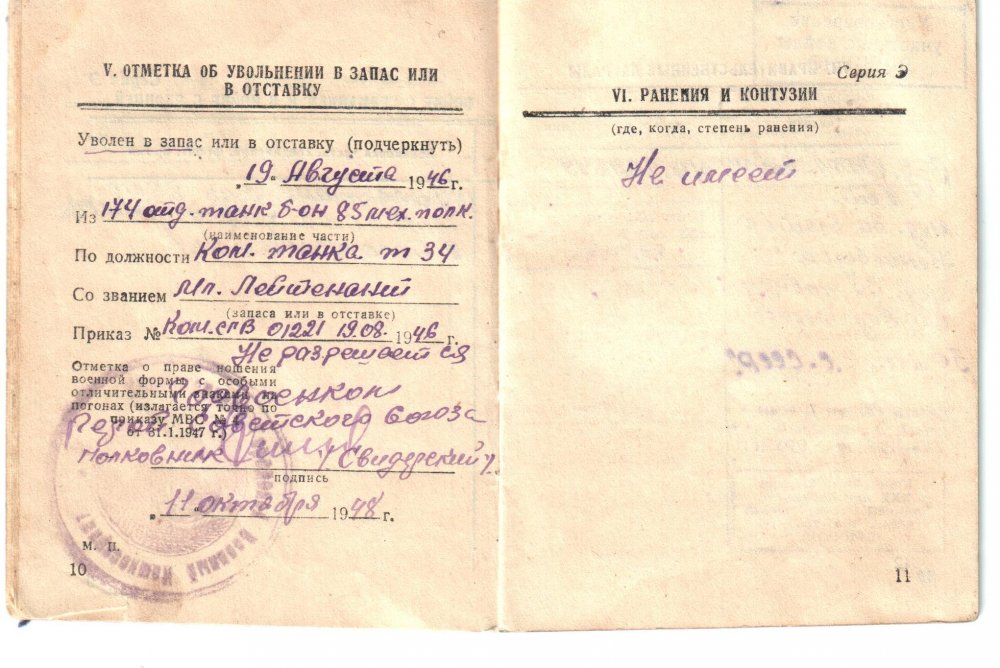 V. ОТМЕТКА ОБ УВОЛЬНЕНИИ В ЗАПАС ИЛИ
В ОТСТАВКУ
Уволен в запас или в отставку (подчеркнуть)
„19„ Августа 1946 г.
Из 174 отд. танк б-он 85 мех. полк.
(наименование части)
По должности Ком. танка т 34
Со званием Мл. Лейтенант
(запаса или в отставке)
Приказ № Ком. 01221 19.08. 1946 г.
Не разрешается
Отметка о праве ношения
военной формы с особыми
отличительными знаками на
погонах (излагается точно по
приказу МВС №
от 31.1.1947 г.)
Райвоенком
Советского Союза
Полковник Свидерский
подпись
„11 октября 1948 г.
М. П.
10
Серия Э
VI. РАНЕНИЯ И КОНТУЗИИ
(где, когда, степень ранения)
Не имеет
11